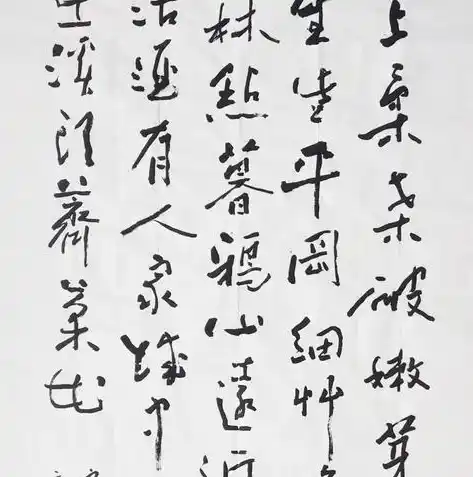 上柔桑破嫩芽
生些平岡細艸
林點暮鴉山遠近
沽酒有人家城中
在溪頭薺菜花